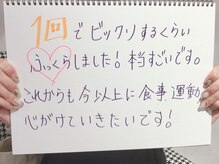 1回でビックリするくらい
ふっくらしました！本当すごいです。
これからも今以上に食事運動
心がけていきたいです！